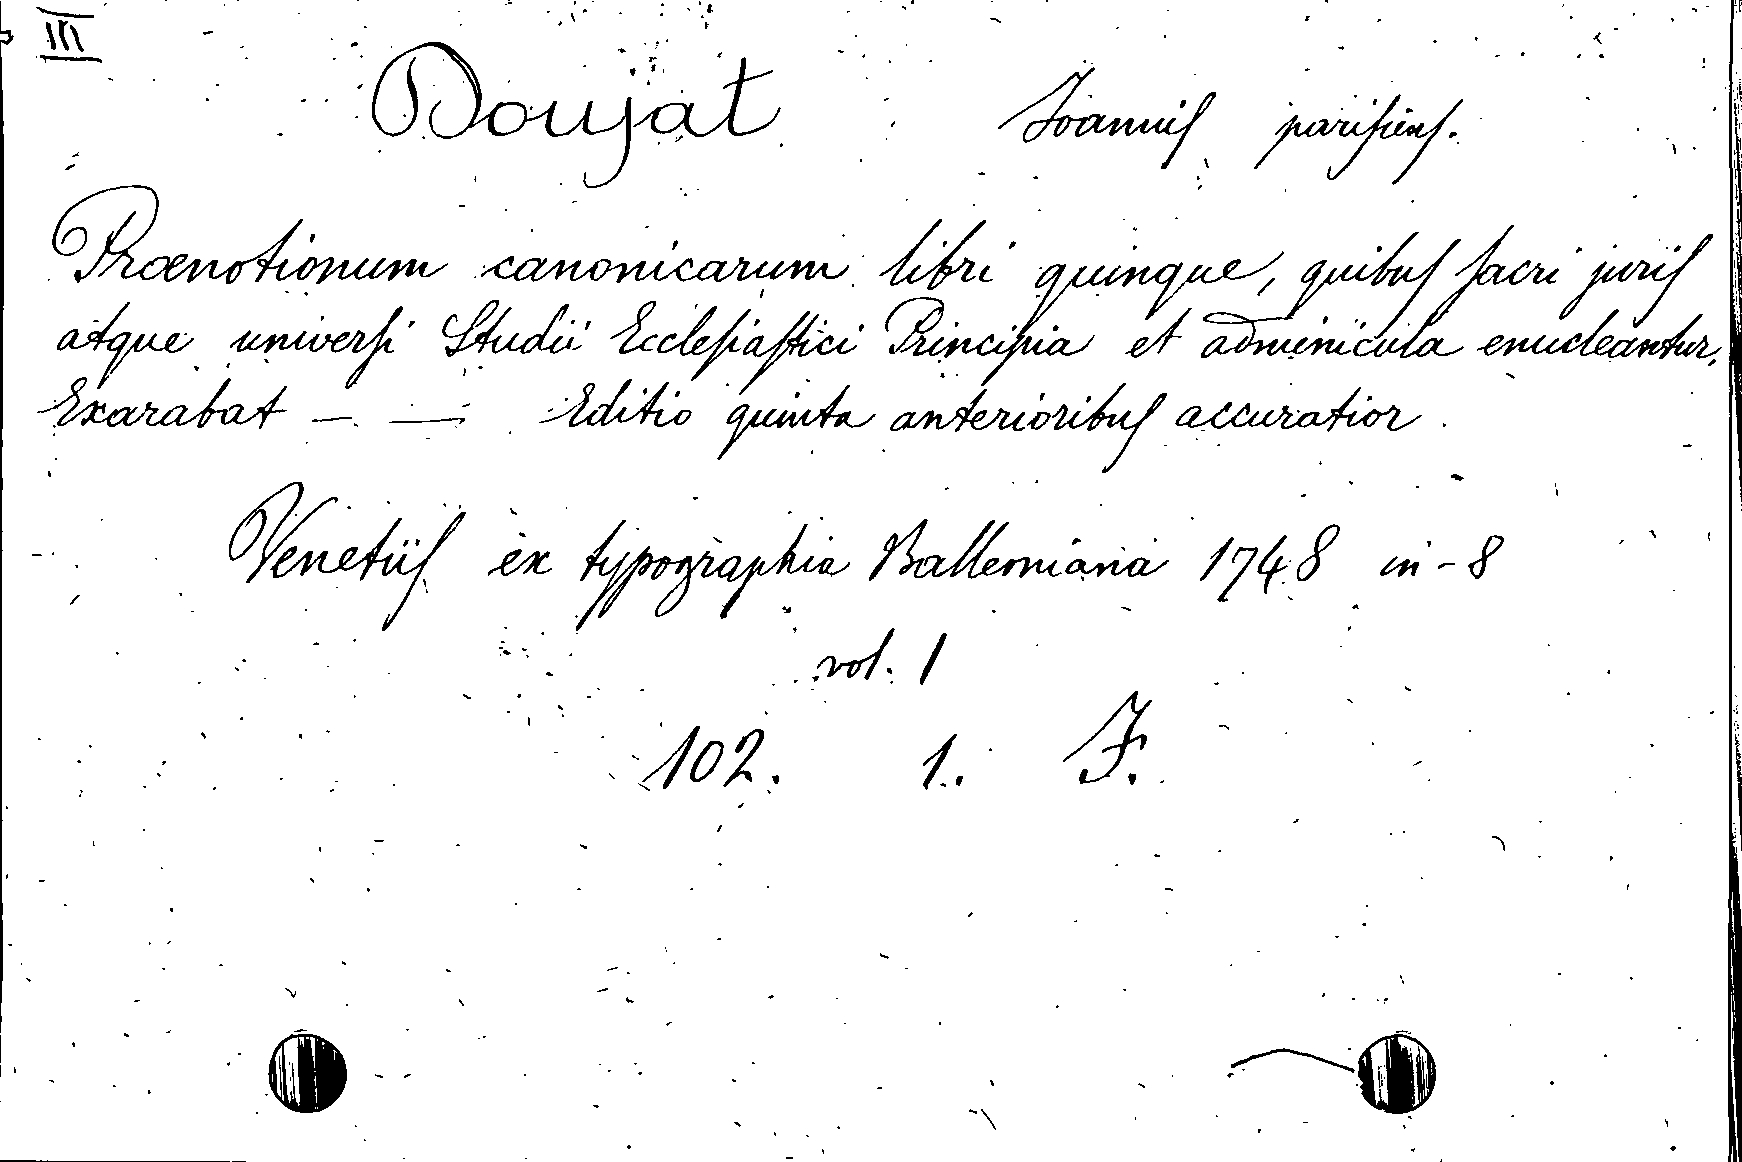 III
Doujat Joannis parisiens.
Prænotionum canonicarum libri quinque, quibus sacri juris
atque universi Studii Ecclesiastici Principia et adminicula enucleantur.
Exarabat — — Editio quinta anterioribus accuratior.
Venetiis ex typographia Balleoniana 1748 in-8
vol. 1
102. 1. F.